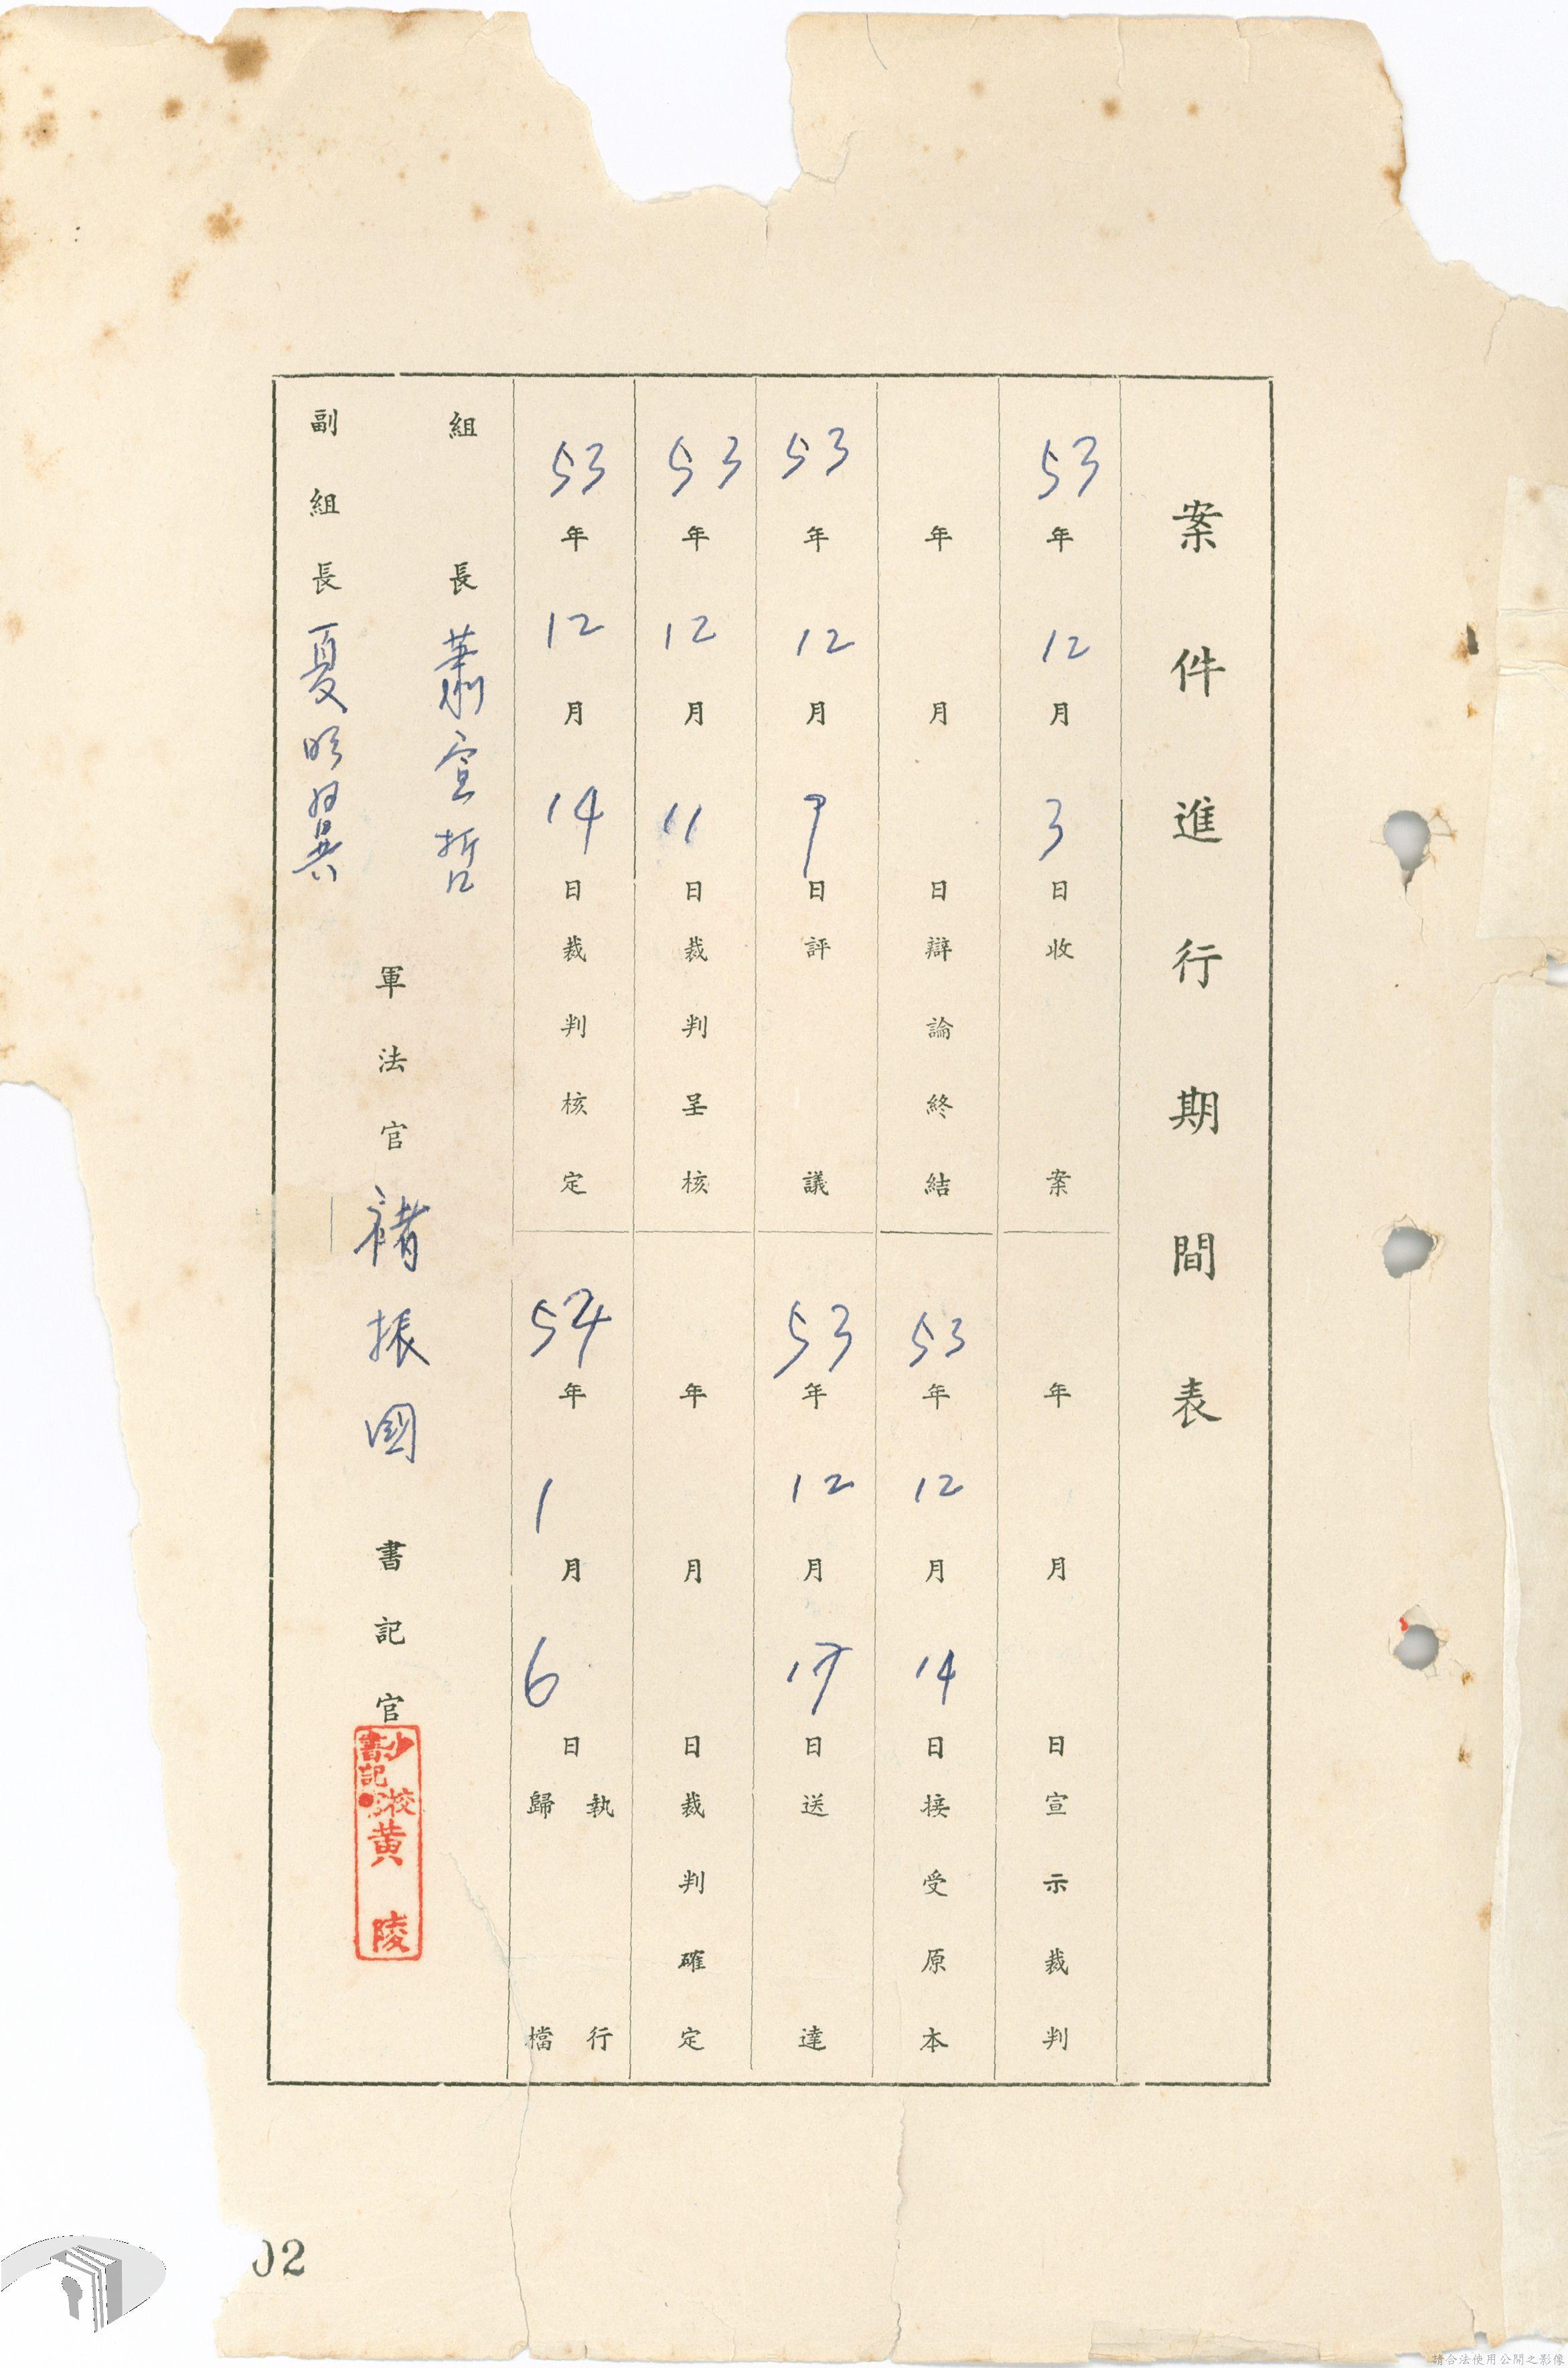 案件進行期間表
53年12月3日收案
年月日宣示裁判
年月日辯論終結
53年12月14日接受原本
53年12月7日評議
53年12月17日送達
53年12月11日裁判呈核
年月日裁判確定
53年12月14日裁判核定
54年1月6日執行歸檔
組長 蕭宣哲
副組長 夏明翼
軍法官 褚振國
書記官
少校書記官 黃陵
02
請合法使用公開之影像